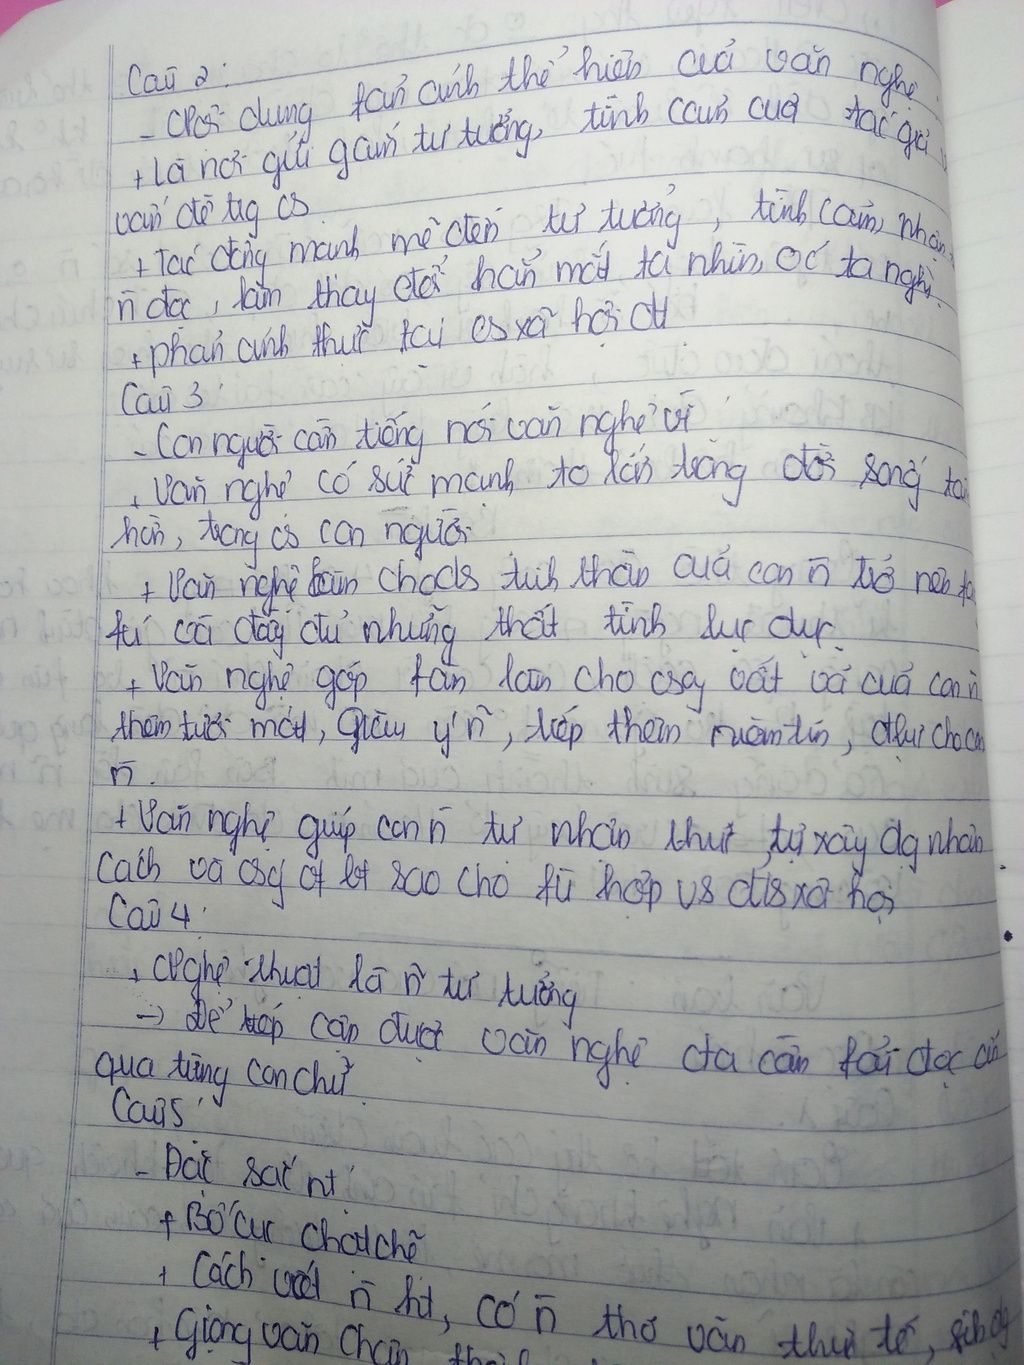 Câu 2:
- Nội dung fản ánh thể hiện của văn nghệ.
+ Là nơi gửi gắm tư tưởng, tình cảm của tác giả
vấn đề trg cs
+ Tác động mạnh mẽ đến tư tưởng, tình cảm, nhận
ñ đọc, làm thay đổi hẳn mắt ta nhìn, óc ta nghĩ.
+ phản ánh thực tại cs xã hội
Câu 3:
- Con người cần tiếng nói văn nghệ vì
+ Văn nghệ có sức mạnh to lớn trong đời sống
hồn, trong cs con người
+ Văn nghệ làm cho đs tinh thần của con ñ trở nên
fú và đầy đủ những
+ Văn nghệ góp fần làm cho vất vả của con ñ
thêm tươi mát, giàu ý ñ, tiếp thêm niềm tin,
ñ.
+ Văn nghệ giúp con ñ tự nhận thức, tự xây dg nhân
cách và sao cho fù hợp vs đs xã hội
Câu 4:
+ Nghệ thuật là ñ tư tưởng
→ Để tiếp cận được văn nghệ cta cần fải đọc
qua từng con chữ
Câu 5:
- Đặc sắc nt
+ Bố cục chặt chẽ
+ Cách viết ñ ht, có ñ thơ văn thực tế,
+ Giọng văn chân